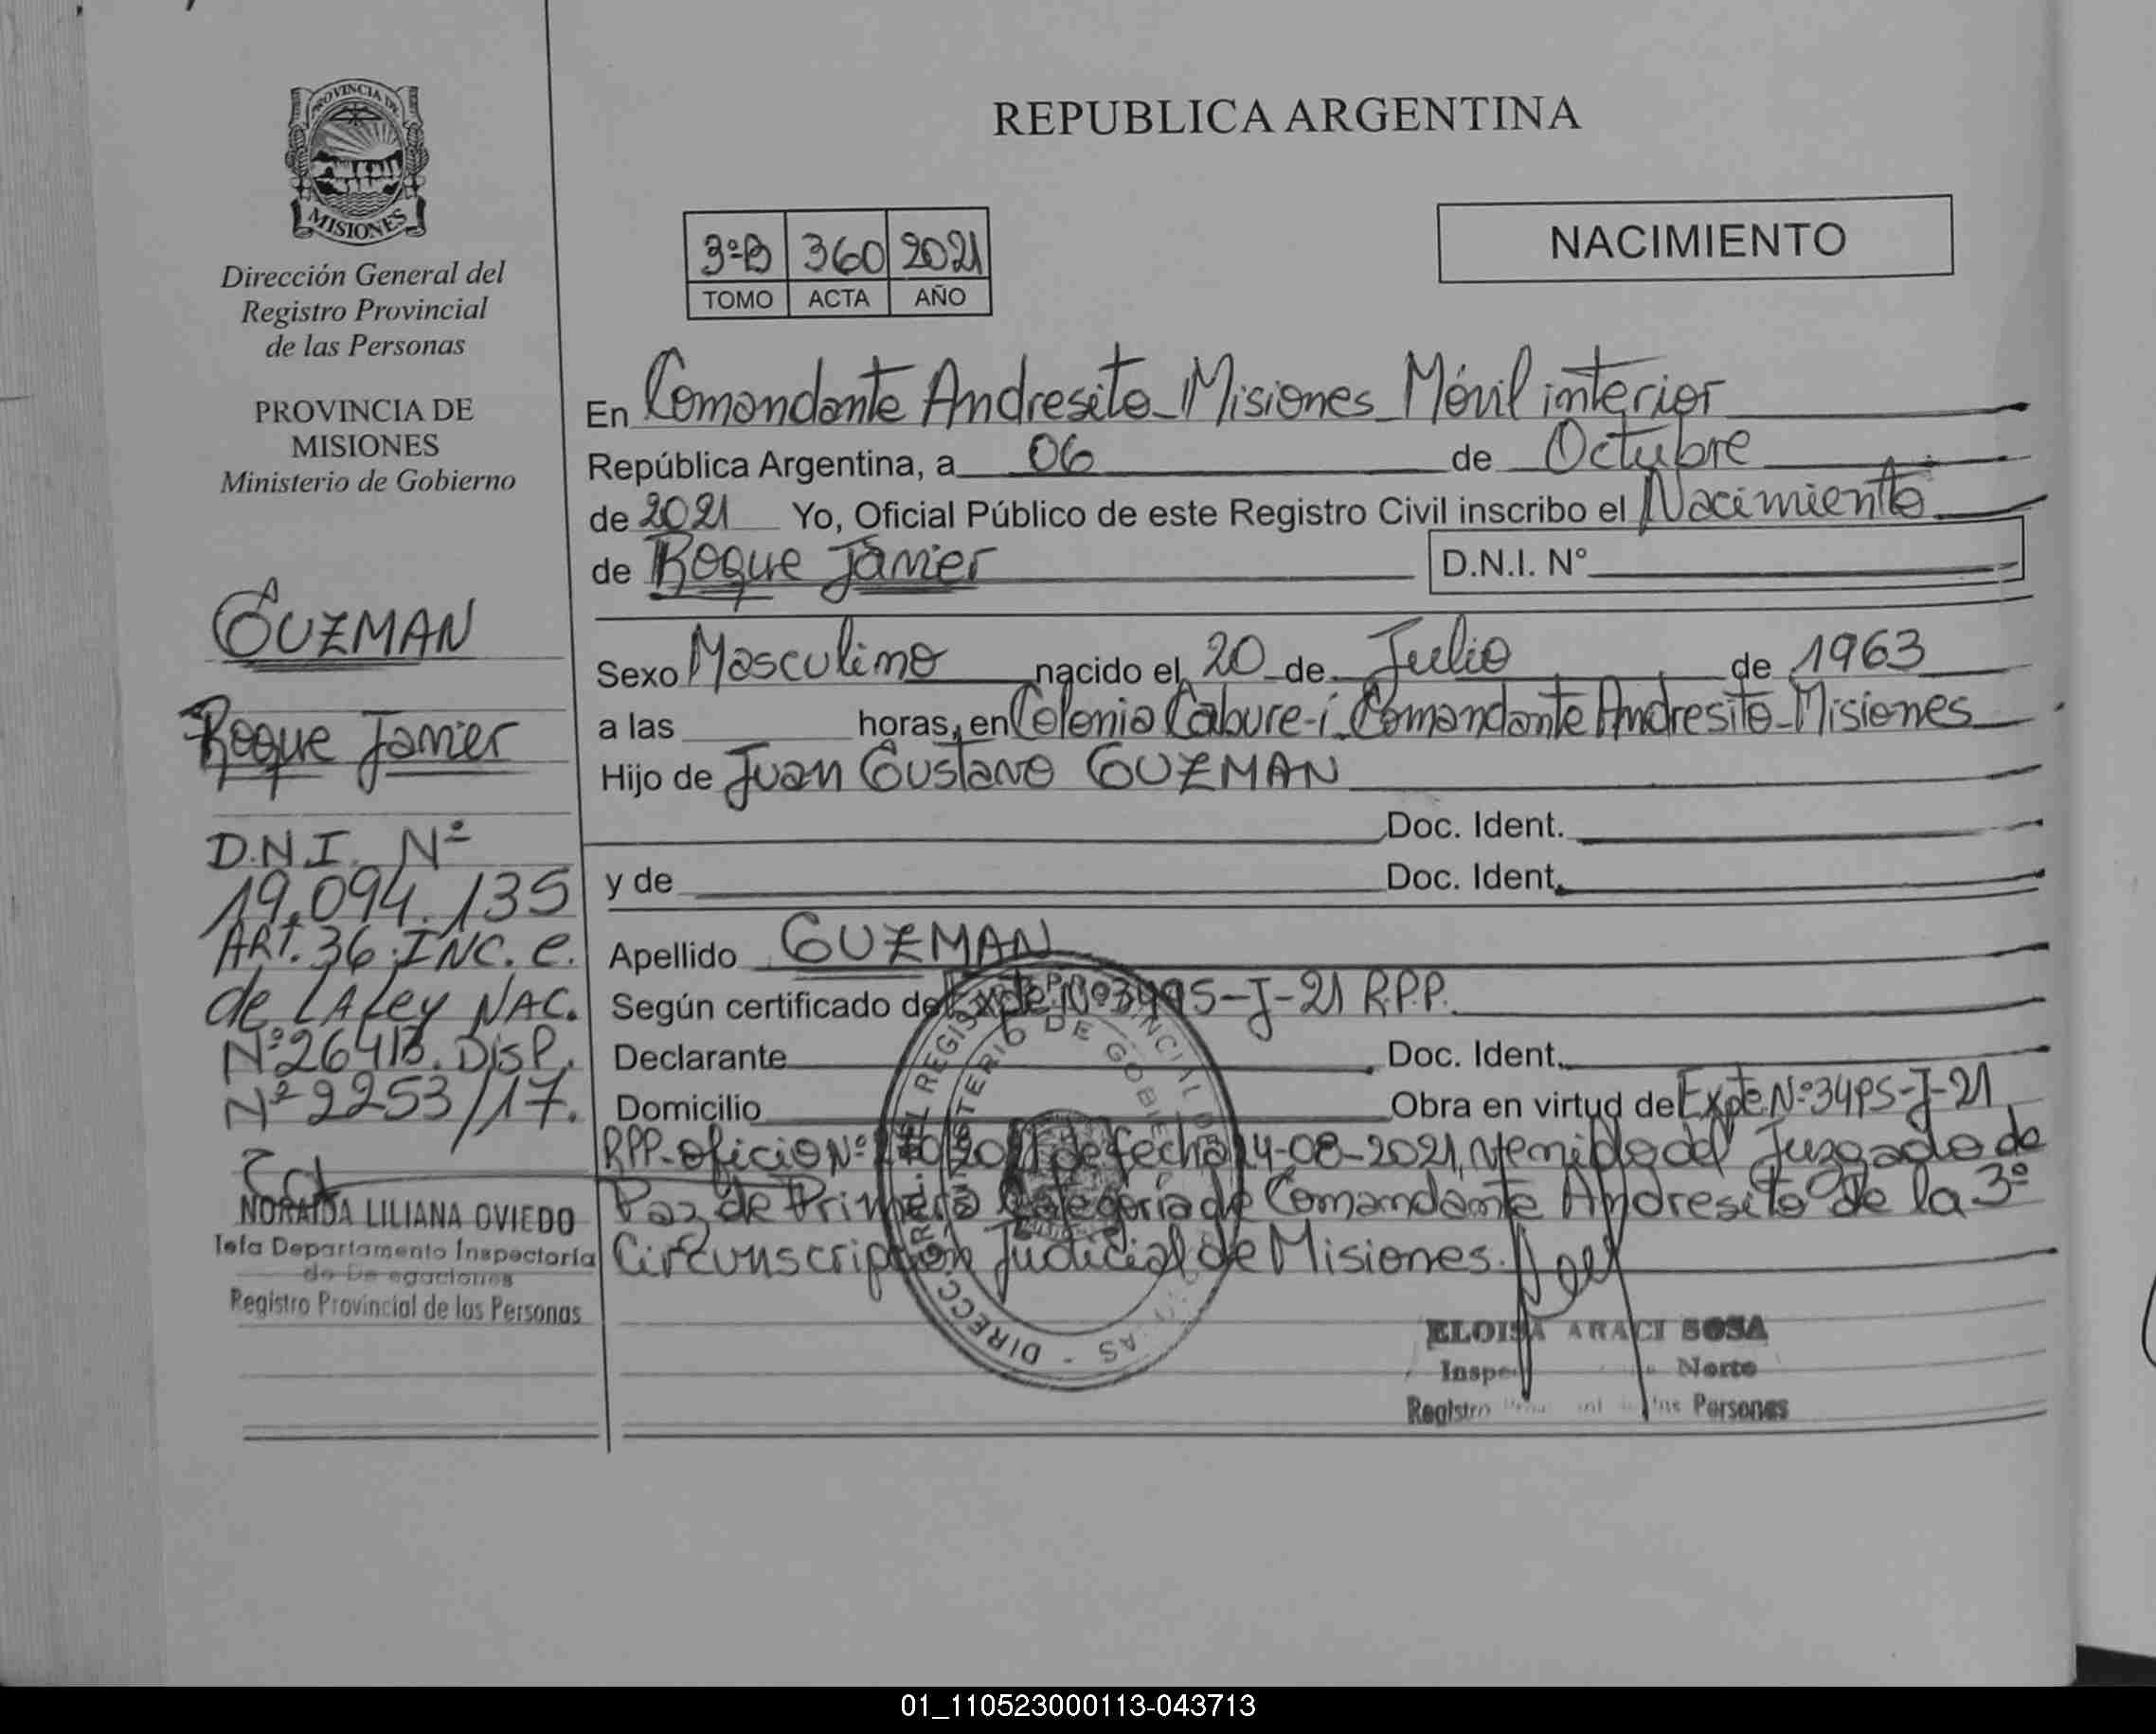 PROVINCIA DE
MISIONES
Dirección General del
Registro Provincial
de las Personas
PROVINCIA DE
MISIONES
Ministerio de Gobierno
GUZMAN
Roque Javier
D.N.I. Nº
19.094.135
ART. 36 INC. e.
de LA Ley NAC.
Nº 26413. DISP.
Nº 2253/17.
NORAIDA LILIANA OVIEDO
Jefa Departamento Inspectoría
de Delegaciones
Registro Provincial de las Personas
REPUBLICA ARGENTINA
3ºB 360 2021
TOMO ACTA AÑO
NACIMIENTO
En Comandante Andresito - Misiones - Móvil interior
República Argentina, a 06 de Octubre
de 2021 Yo, Oficial Público de este Registro Civil inscribo el Nacimiento
de Roque Javier D.N.I. Nº
Sexo Masculino nacido el 20 de Julio de 1963
a las horas, en Colonia Cabure-i - Comandante Andresito - Misiones
Hijo de Juan Gustavo GUZMAN
Doc. Ident.
y de Doc. Ident.
Apellido GUZMAN
Según certificado de Expte. Nº 3495-J-21 R.P.P.
Declarante Doc. Ident.
Domicilio Obra en virtud de Expte. Nº 3495-J-21
RPP - Oficio Nº de fecha 14-08-2021, venido del Juzgado de
Paz de Primera Categoría de Comandante Andresito de la 3º
Circunscripción Judicial de Misiones.
ELOISA ARACI SOSA
Norte
Registro Personas
01_110523000113-043713